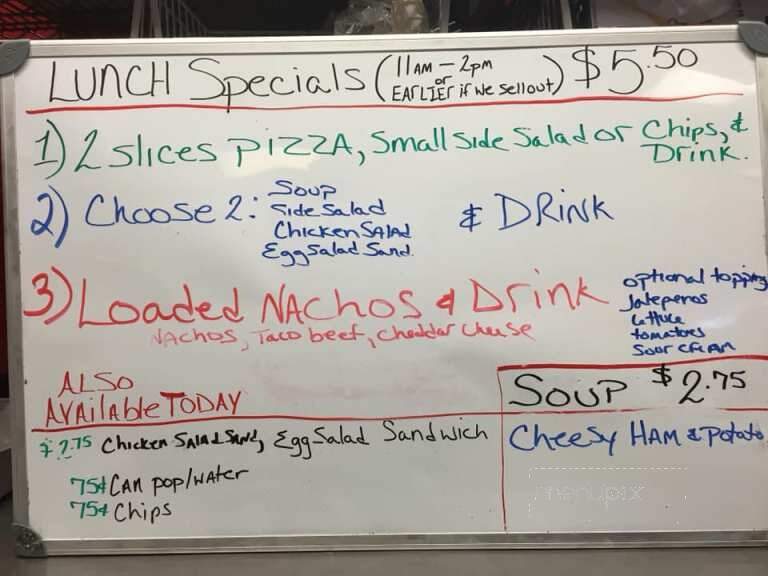 LUNCH Specials (11AM - 2pm or EARLIER if we sell out) $5.50
1) 2 slices PIZZA, Small side Salad or Chips, & Drink.
2) Choose 2: Soup
Side Salad
Chicken SALAD
Egg Salad Sand.
& DRINK
3) Loaded NACHOS & Drink
NACHOS, Taco beef, Cheddar Cheese
optional topping
Jalepenos
Lettuce
tomatoes
Sour CREAM
ALSO
AVAilable TODAY
$2.75 Chicken SALAD SAND, Egg Salad Sandwich
75¢ CAN pop/water
75¢ Chips
SOUP $2.75
Cheesy HAM & Potato
menupix